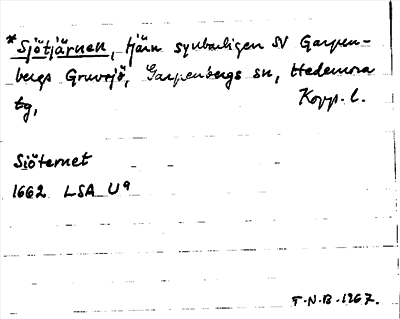 *Sjötjärnen, tjärn synbarligen SV Garpen-
bergs Gruvsjö, Garpenbergs sn, Hedemora
tg, Kopp. l.
Siöternet
1662 LSA U9
T.N.B. 1967.